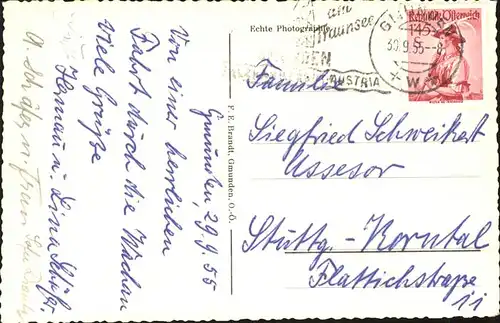 Echte Photographie
am
Traunsee
GMUNDEN
AUSTRIA
30.9.55-8
Republik Österreich
145
F. E. Brandt, Gmunden, O.-Ö.
Gmunden, 29.9.55
Von einer herrlichen
Fahrt durch die Wachau
viele Grüße
Herman u. Lina
Familie
Siegfried Schweikert
Assesor
Stuttg.-Korntal
Flattichstraße
11